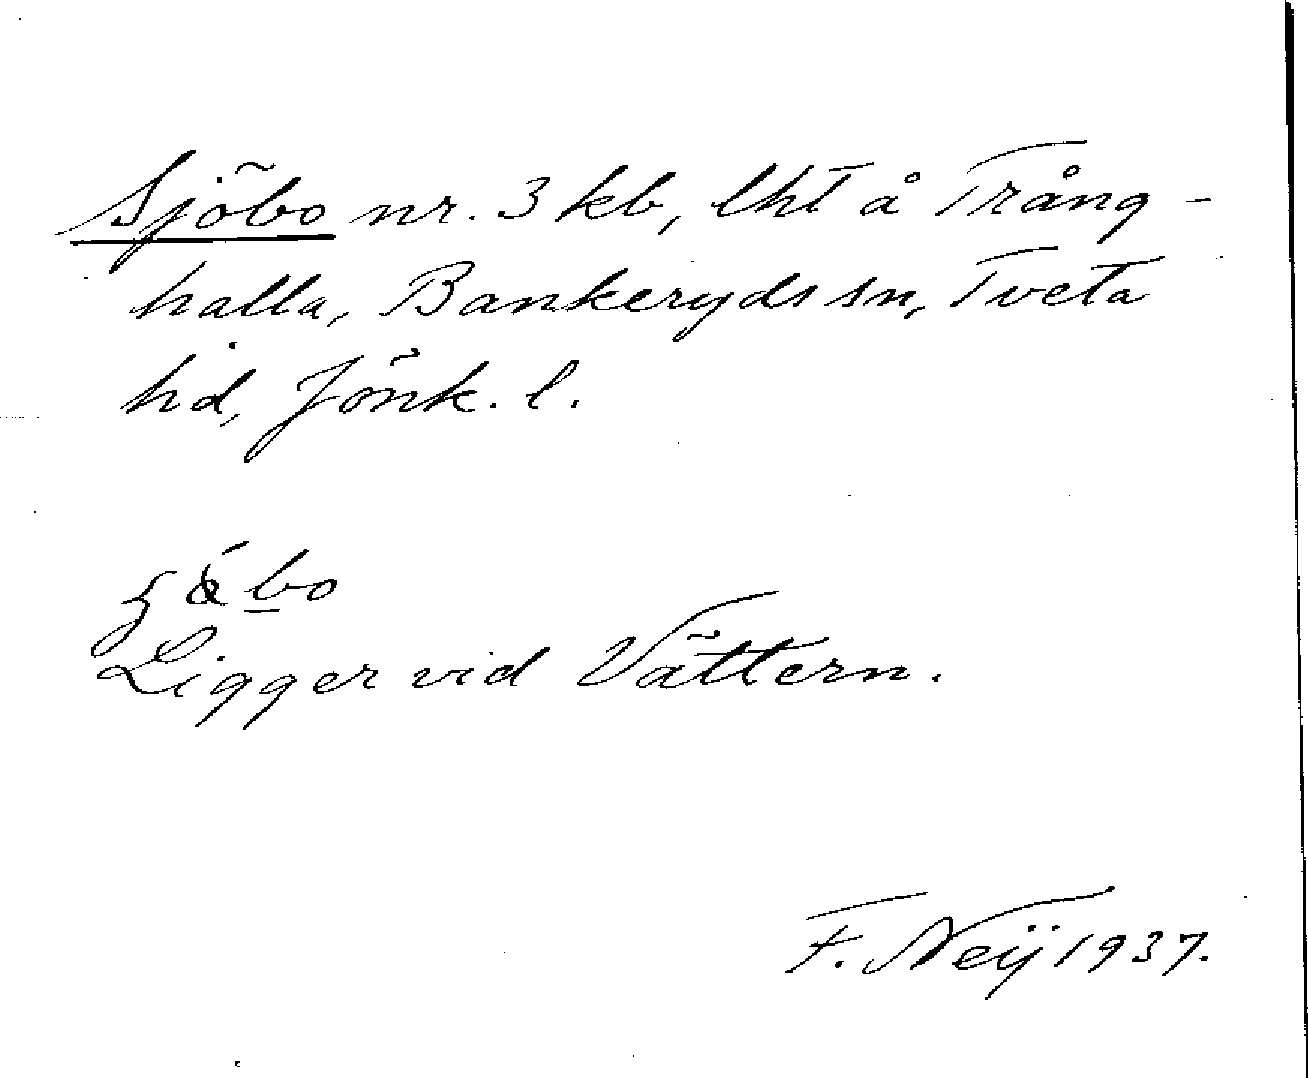 Sjöbo nr. 3 kb, lht å Trång-
halla, Bankeryds sn, Tveta
hd, Jönk. l.
bo
Ligger vid Vättern.
F. Neij 1937.